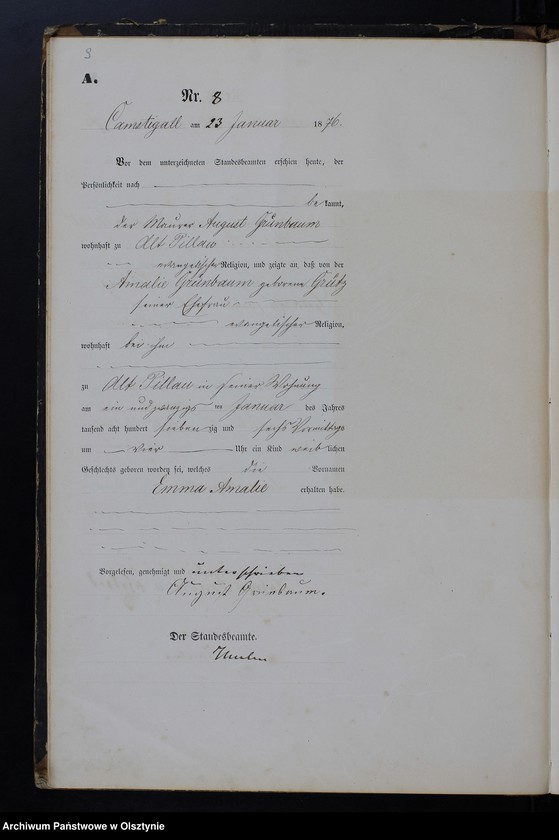 9
A.
Nr. 8
Camstigall am 23 Januar 1876.
Vor dem unterzeichneten Standesbeamten erschien heute, der
Persönlichkeit nach
bekannt,
der Maurer August Grünbaum
wohnhaft zu Alt Pillau
evangelischer Religion, und zeigte an, daß von der
Amalie Grünbaum geborene Grütz
seiner Ehefrau
evangelischer Religion,
wohnhaft bei ihm
zu Alt Pillau in seiner Wohnung
am ein und zwanzigs ten Januar des Jahres
tausend acht hundert siebenzig und sechs Vormittags
um vier Uhr ein Kind weiblichen
Geschlechts geboren worden sei, welches die Vornamen
Emma Amalie erhalten habe.
Vorgelesen, genehmigt und unterschrieben
August Grünbaum.
Der Standesbeamte.
Archiwum Państwowe w Olsztynie